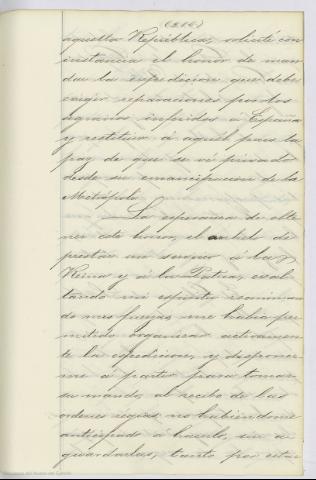 (216)
aquella República, solicité con
instancia el honor de man
dar la espedicion que debe
exigir reparaciones por los
agravios inferidos á España
y restituir á aquel pais la
paz de que se vé privado
desde su emancipacion de la
Metrópoli.
La esperanza de obte
ner este honor, el anhelo de
prestar un servicio á la
Reina y á la Patria, exal
tando mi espíritu
de mis fuerzas me habia per
mitido organizar activamen
te la espedicion, y disponer
me á partir para tomar
su mando al recibo de las
ordenes regias no habiéndome
anticipado á hacerlo, sin a
guardarlas, tanto por estar